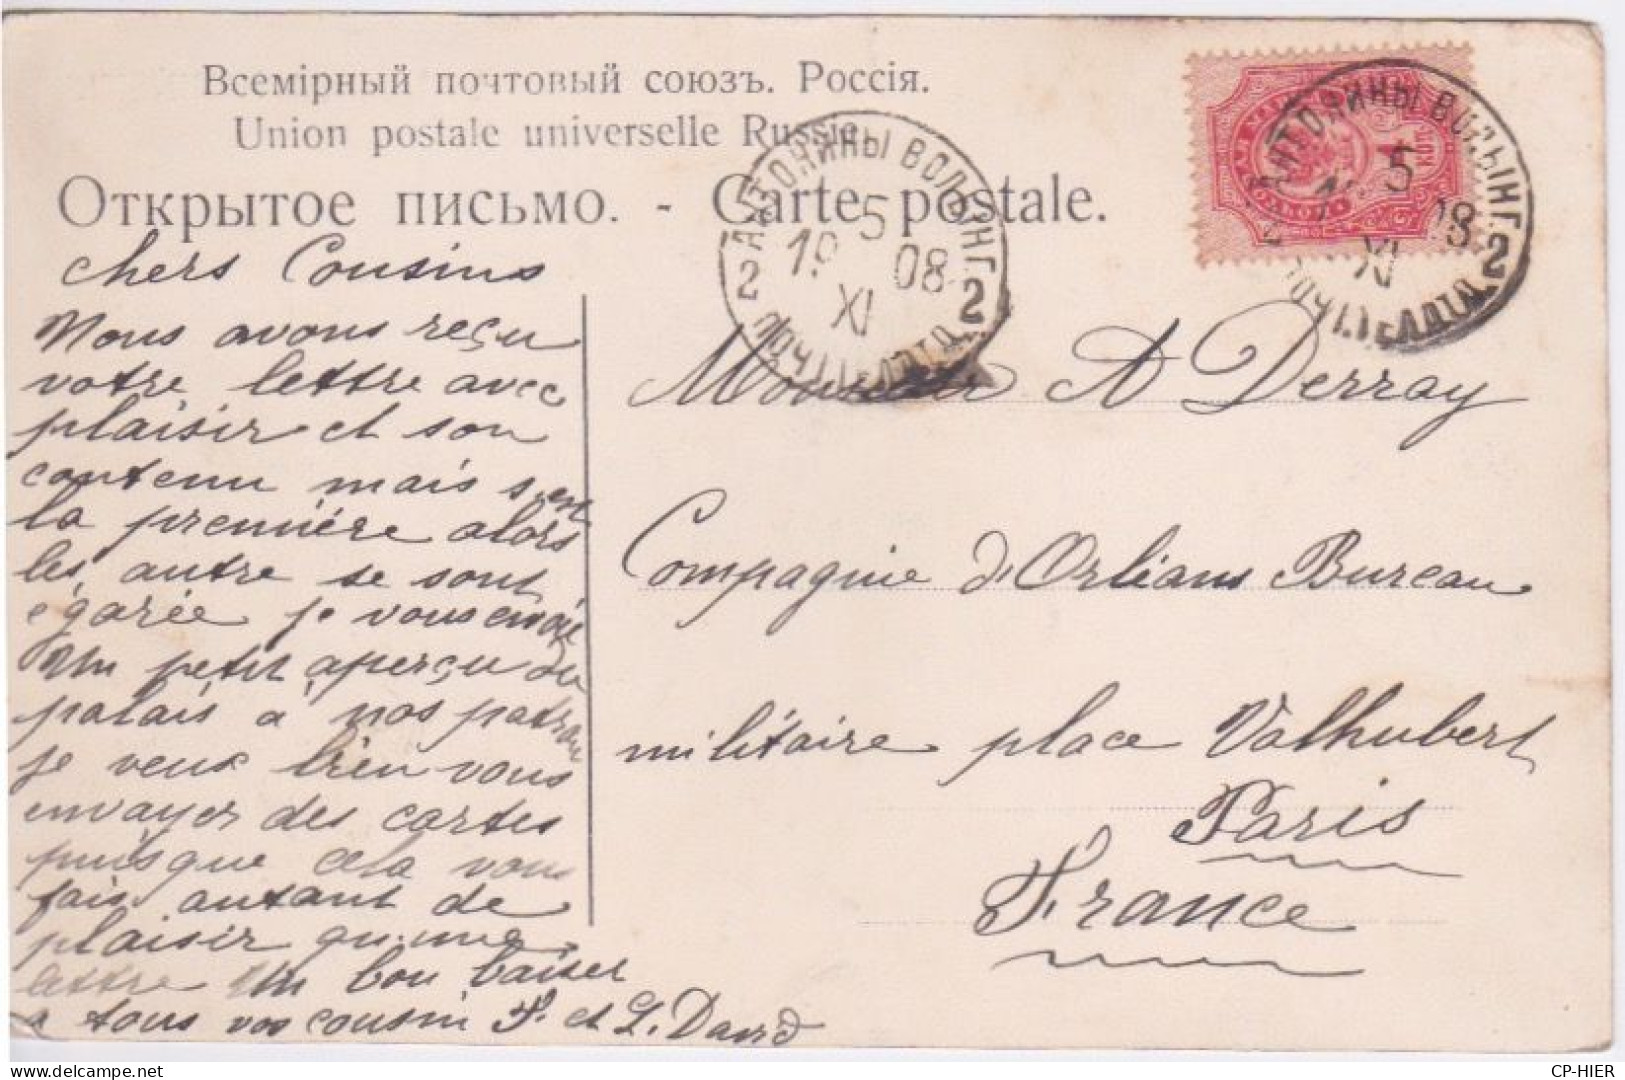 Всемірный почтовый союзъ. Россія.
Union postale universelle Russie.
Открытое письмо. - Carte postale.
АНТОНИНЫ ВОЛЫНГ.
19 5 08
XI
2 2
АНТОНИНЫ ВОЛЫНГ.
5
XI
2
КОП.
chers Cousins
Nous avons reçu
votre lettre avec
plaisir et son
contenu mais s'en
la première alors
les autre se sont
égarée je vous envoie
un petit aperçu du
palais a nos patron
je veux bien vous
envoyer des cartes
puisque cela vous
fais autant de
plaisir qu'une
lettre Un bon baiser
a tous vos cousin F. et L. David
Monsieur A Derray
Compagnie d'Orléans Bureau
militaire place Valhubert
Paris
France
CP-HIER